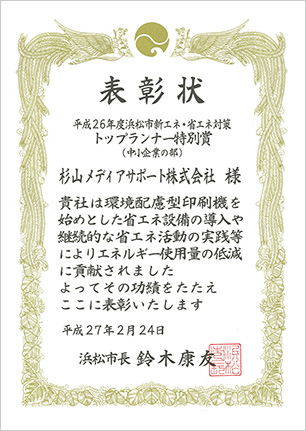 表彰状
平成26年度浜松市新エネ・省エネ対策
トップランナー特別賞
(中小企業の部)
杉山メディアサポート株式会社 様
貴社は環境配慮型印刷機を
始めとした省エネ設備の導入や
継続的な省エネ活動の実践等
によりエネルギー使用量の低減
に貢献されました
よってその功績をたたえ
ここに表彰いたします
平成27年2月24日
浜松市長 鈴木康友